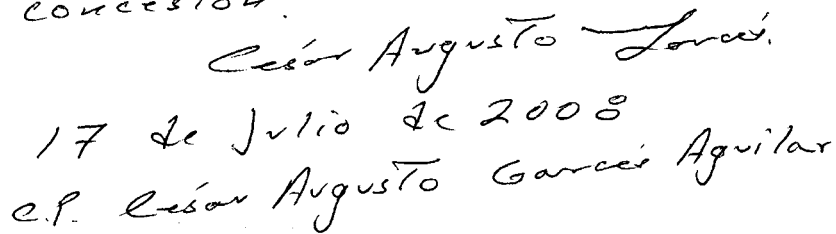 concesión.
César Augusto Garcés.
17 de Julio de 2008
C.P. César Augusto Garcés Aguilar